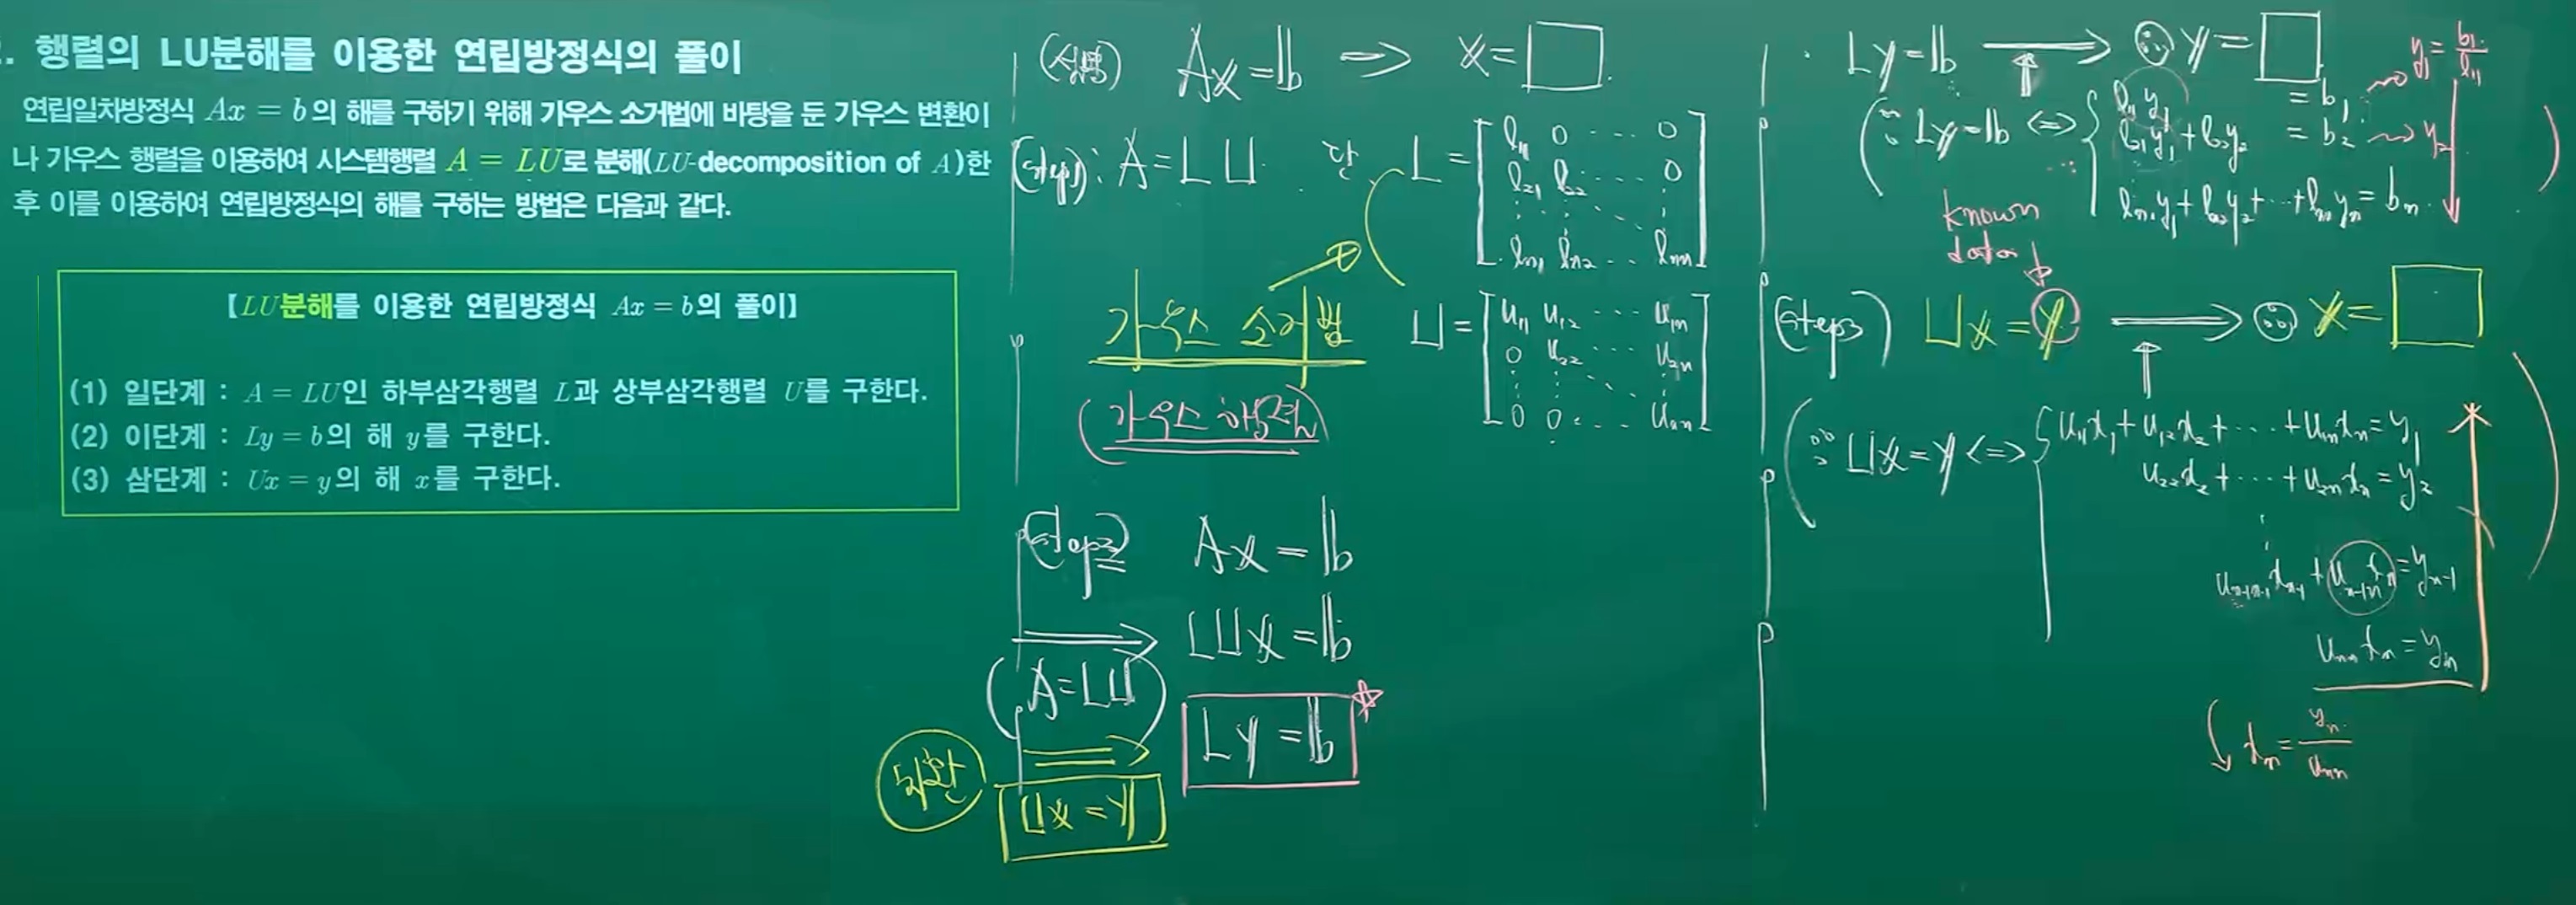 2. 행렬의 LU분해를 이용한 연립방정식의 풀이
연립일차방정식 Ax = b의 해를 구하기 위해 가우스 소거법에 바탕을 둔 가우스 변환이
나 가우스 행렬을 이용하여 시스템행렬 A = LU로 분해(LU-decomposition of A)한
후 이를 이용하여 연립방정식의 해를 구하는 방법은 다음과 같다.
【LU분해를 이용한 연립방정식 Ax = b의 풀이】
(1) 일단계 : A = LU인 하부삼각행렬 L과 상부삼각행렬 U를 구한다.
(2) 이단계 : Ly = b의 해 y를 구한다.
(3) 삼단계 : Ux = y의 해 x를 구한다.
(설명) Ax = b ⇒ x = □
(step1) : A = LU. 단
L = [ l11 0 ... 0
l21 l22 ... 0
ln1 ln2 ... lnn ]
가우스 소거법
(가우스 행렬)
U = [ u11 u12 ... u1n
0 u22 ... u2n
0 0 ... unn ]
(step2) Ax = b
⇒ LUx = b
(A = LU)
⇒ Ly = b
치환
Ux = y
Ly = b ⇒ ∴ y = □
(∵ Ly = b ⇔ { l11y1 = b1 → y1 = b1/l11
l21y1 + l22y2 = b2 → y2
ln1y1 + ln2y2 + ... + lnnyn = bn )
known
data
(step3) Ux = y ⇒ ∴ x = □
(∵ Ux = y ⇔ { u11x1 + u12x2 + ... + u1nxn = y1
u22x2 + ... + u2nxn = y2
un-1n-1xn-1 + un-1nxn = yn-1
unnxn = yn )
xn = yn/unn